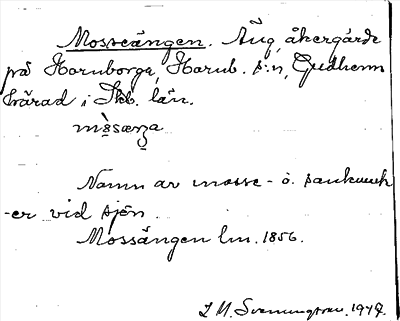 Mosseängen. Äng, åkergärde
på Hornborga, Hornb. s:n, Gudhems
härad i Skb. län.
Namn av mosse- o. sankmark
-er vid sjön.
Mossängen lm. 1856.
1947.